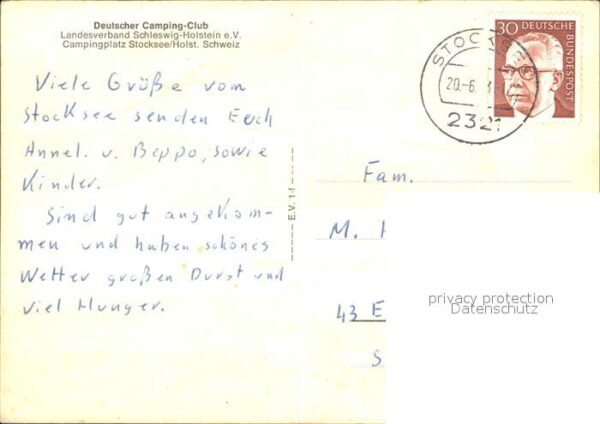 Deutscher Camping-Club
Landesverband Schleswig-Holstein e.V.
Campingplatz Stocksee/Holst. Schweiz
30 DEUTSCHE
BUNDESPOST
STOCKSEE
20.-6.
2321
Viele Grüße vom
Stocksee senden Euch
Annel. u. Beppo, sowie
Kinder.
Sind gut angekom-
men und haben schönes
Wetter großen Durst und
viel Hunger.
E.V. 14
Fam.
M.
43 E
S
privacy protection
Datenschutz